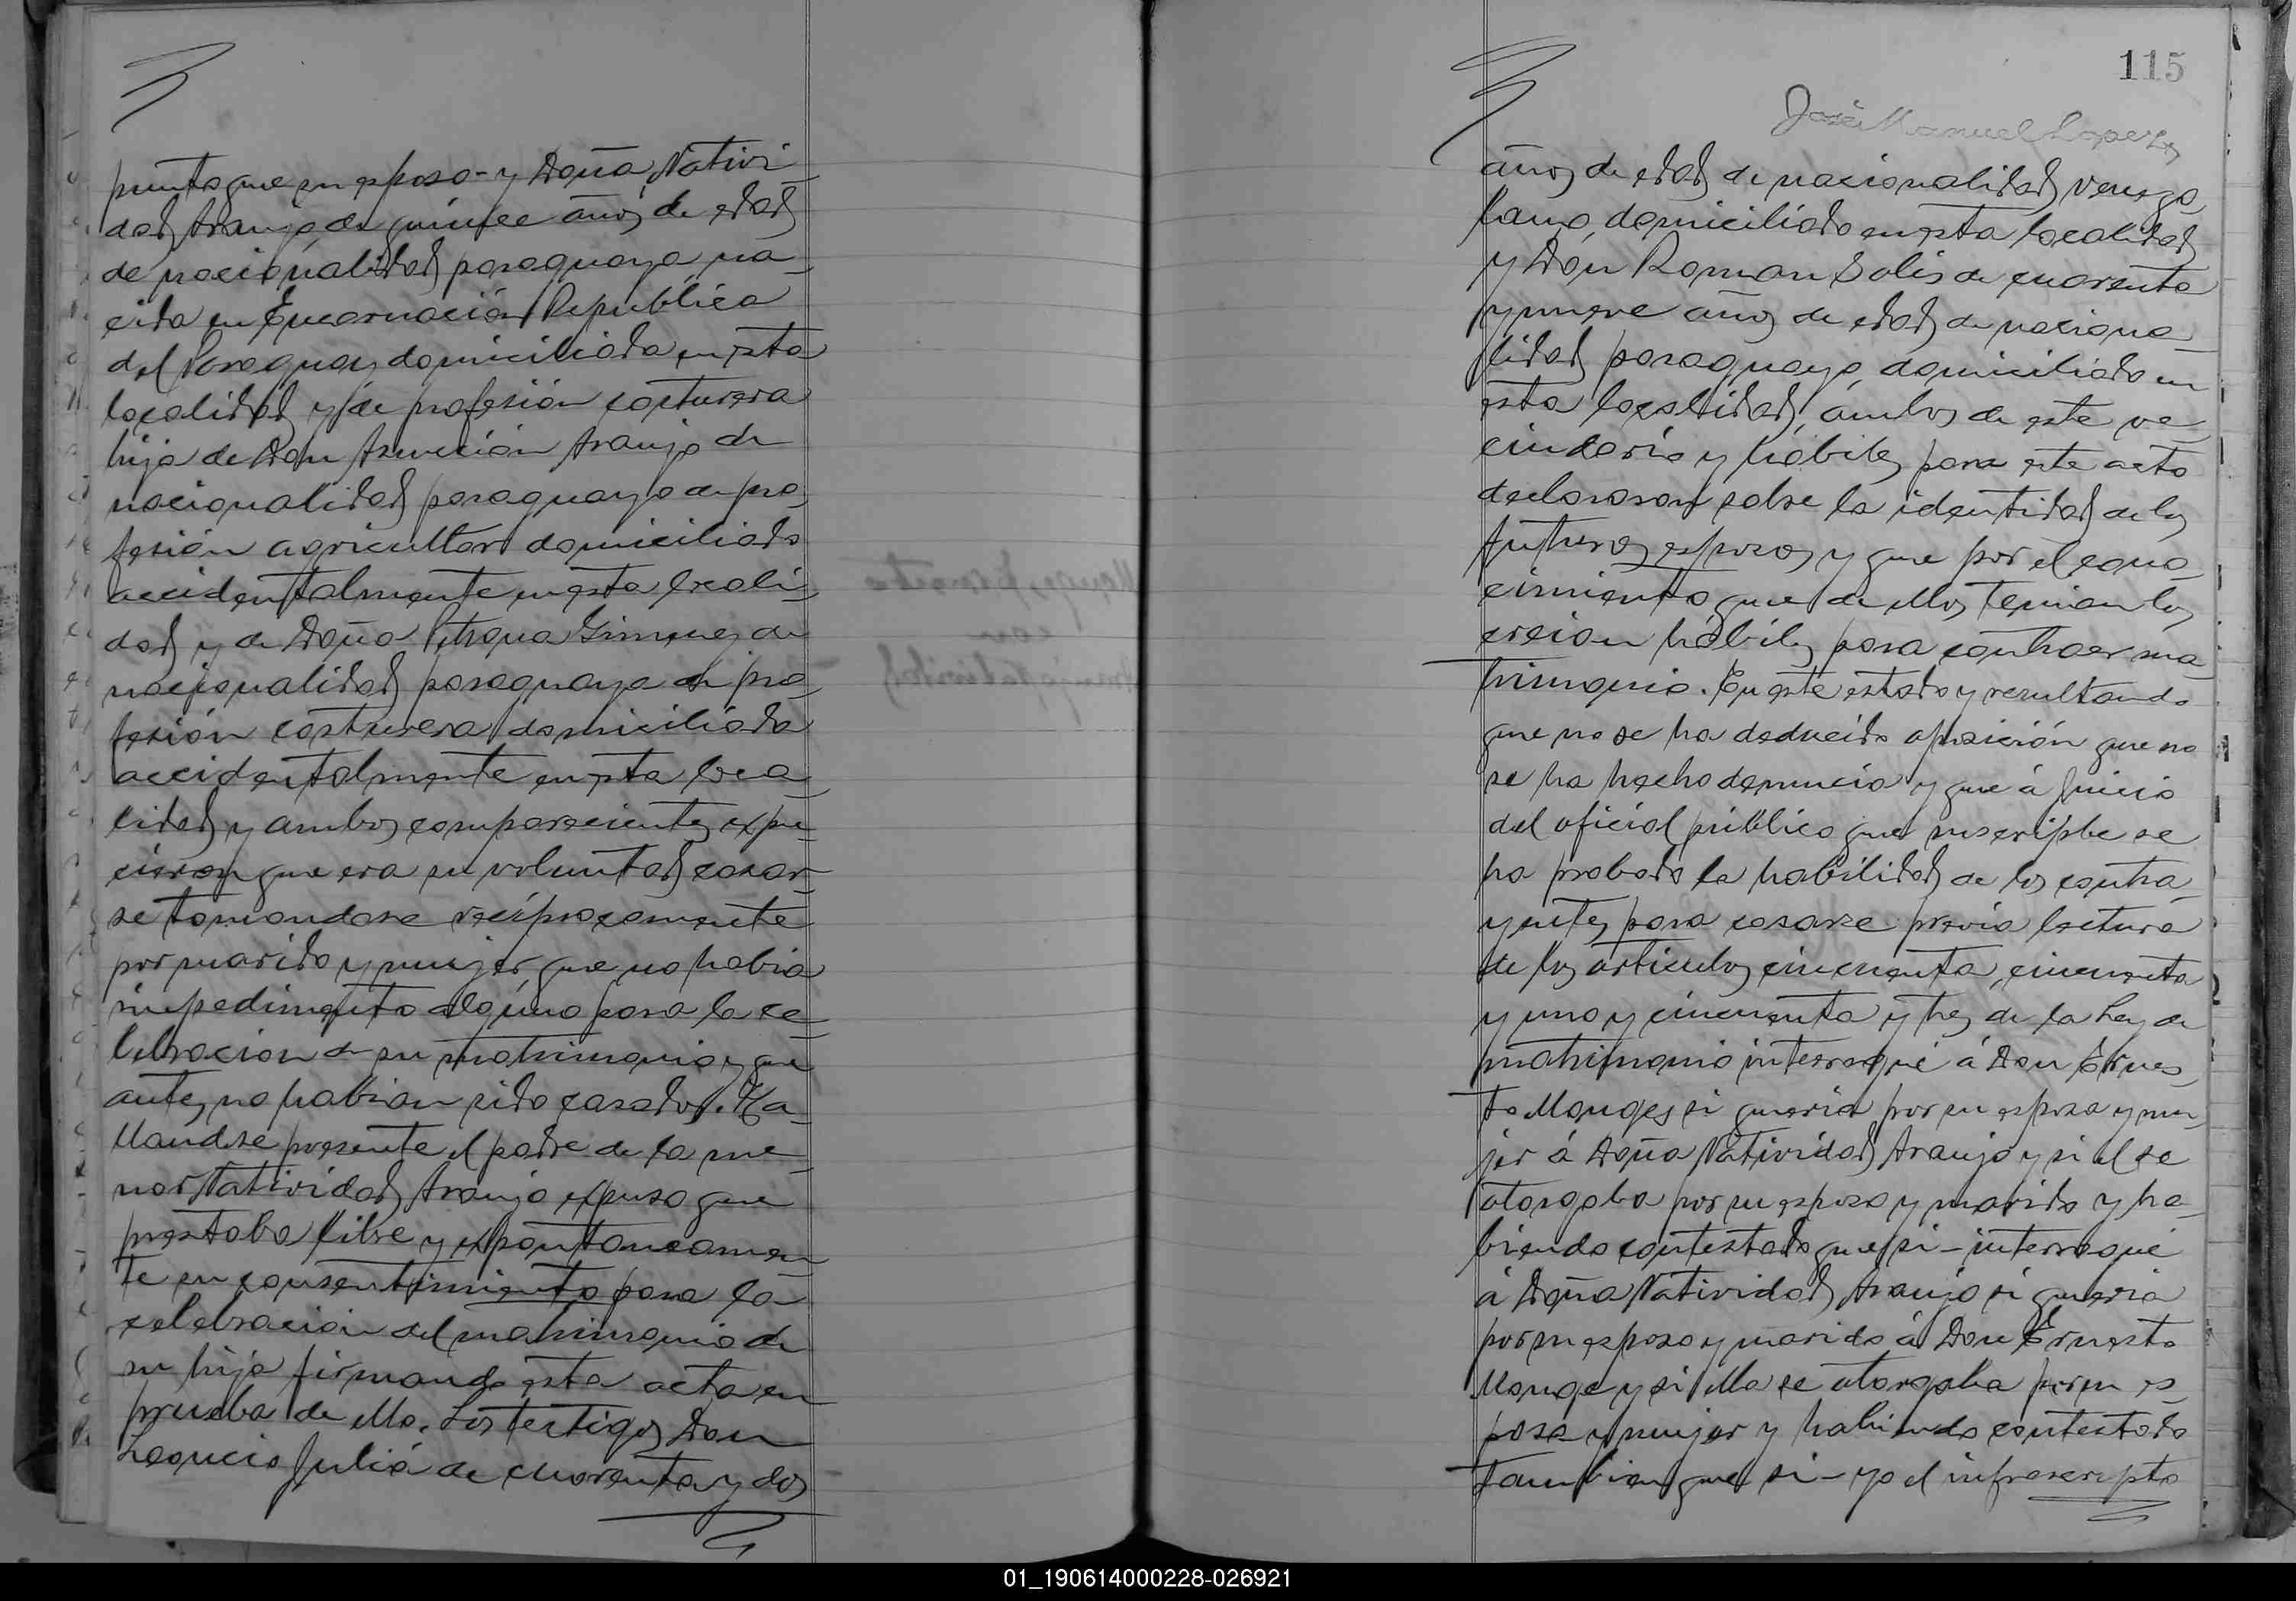 punto que su esposo - y Doña Nativi-
dad Araujo de quince años de edad
de nacionalidad paraguaya, na-
cida en Encarnación República
del Paraguay domiciliada en esta
localidad y de profesión costurera
hija de Don Asunción Araujo de
nacionalidad paraguayo de pro-
fesión agricultor domiciliado
accidentalmente en esta locali-
dad y de Doña Petrona Gimenez de
nacionalidad paraguaya de pro-
fesión costurera domiciliada
accidentalmente en esta loca-
lidad y ambos comparecientes expu-
cieron que era su voluntad casar-
se tomandose reciprocamente
por marido y mujer, que no habia
impedimento alguno para la ce-
lebracion de su matrimonio y que
antes no habian sido casados. Ha-
llandose presente el padre de la me-
nor Natividad Araujo expuso que
prestaba libre y expontaneamen-
te su consentimiento para la
celebracion del matrimonio de
su hija firmando esta acta en
prueba de ello. Los testigos Don
Leoncio Juliá de cuarenta y dos
115
José Manuel Lopez
años de edad de nacionalidad
domiciliado en esta localidad
y Dón Roman Solis de cuarenta
y nueve años de edad de naciona-
lidad paraguayo domiciliado en
esta localidad, ambos de este ve-
cindario y hábiles para este acto
declararon sobre la identidad de los
futuros esposos y que por el cono-
cimiento que de ellos tenian los
creian hábiles para contraer ma-
trimonio. En este estado y resultando
que no se ha deducido oposición que no
se ha hecho denuncia y que á juicio
del oficial público que suscripbe se
ha probado la habilidad de los contra-
yentes para casarse previa lectura
de los articulos cincuenta, cincuenta
y uno y cincuenta y tres de la Ley de
matrimonio interrogué á Don Ernes-
to Monges si queria por su esposa y mu-
jer á Doña Natividad Araujo y si el se
otorgaba por su esposo y marido y ha-
biendo contestado que si - interrogué
á Doña Natividad Araujo si queria
por su esposo y marido á Don Ernesto
Monge y si ella se otorgaba por su es-
posa y mujer y habiendo contestado
tambien que si - yo el infrascripto
01_190614000228-026921